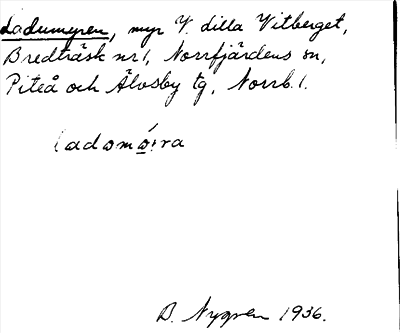 Ladumyren, myr V. dilla Vitberget,
Bredträsk nr 1, Norrfjärdens sn,
Piteå och Älvsby tg, Norrb. l.
ladomó̱ra
B. Nygren 1936.